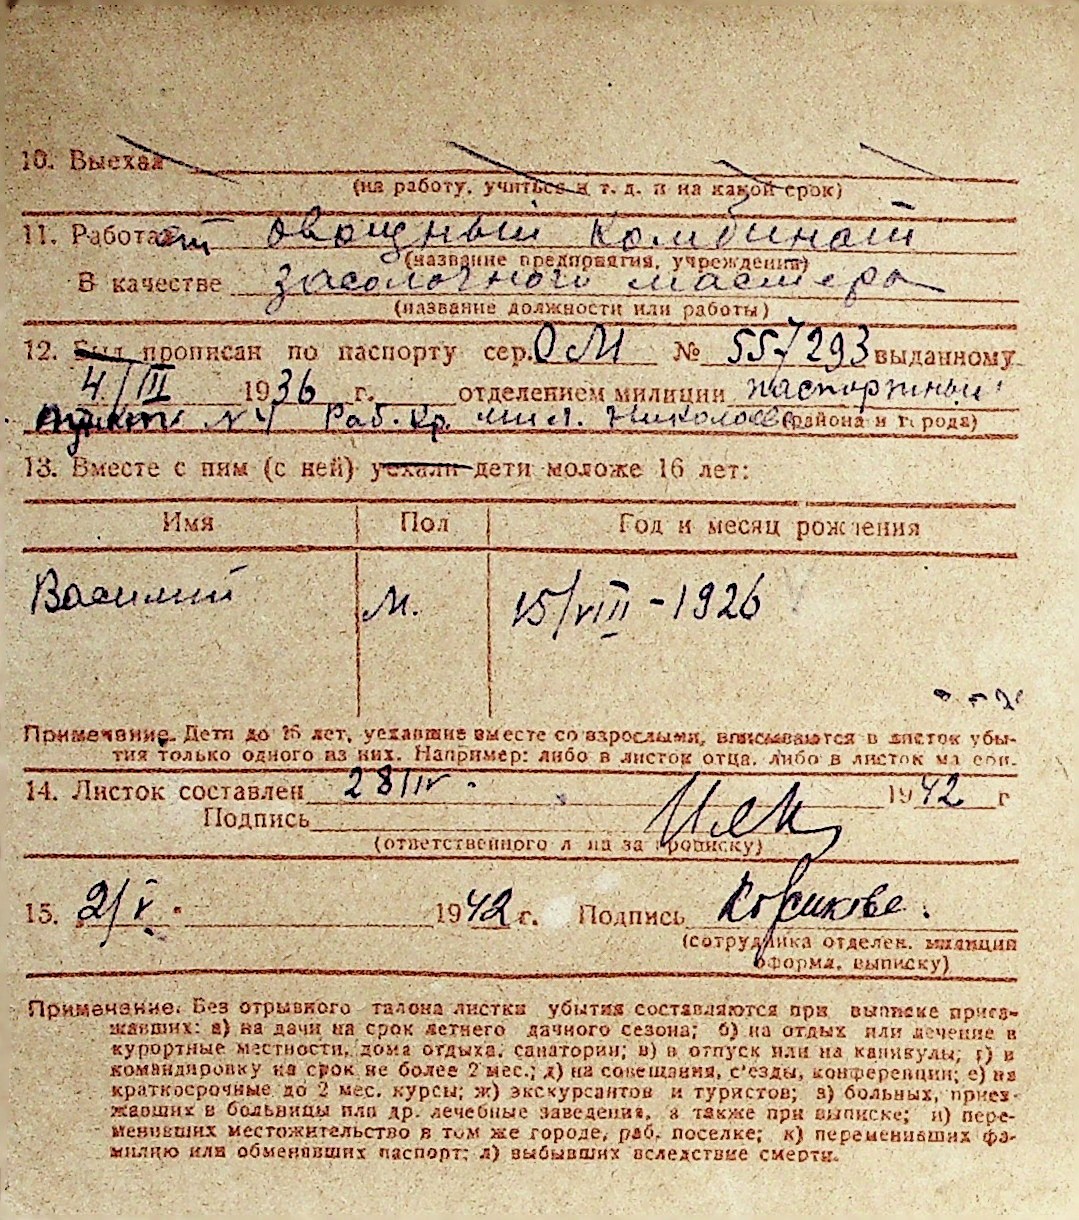 10. Выехал
(на работу, учиться и т. д. и на какой срок)
11. Работает Овощный комбинат
(название предприятия, учреждения)
В качестве засолочного мастера
(название должности или работы)
12. Был прописан по паспорту сер. ОМ № 557293 выданному
4/III 1936 г. отделением милиции паспортный
пункт № 4 Раб. Кр. мил. Николаев (района и города)
13. Вместе с ним (с ней) уехали дети моложе 16 лет:
Имя Пол Год и месяц рождения
Василий М. 15/VIII - 1926
Примечание. Дети до 16 лет, уехавшие вместе со взрослыми, вписываются в листок убы-
тия только одного из них. Например: либо в листок отца, либо в листок матери.
14. Листок составлен 28/IV. 1942 г
Подпись
(ответственного лица за прописку)
15. 2/V. 1942 г. Подпись
(сотрудника отделен. милиции
оформл. выписку)
Примечание. Без отрывного талона листки убытия составляются при выписке приез-
жавших: а) на дачи на срок летнего дачного сезона; б) на отдых или лечение в
курортные местности, дома отдыха, санатории; в) в отпуск или на каникулы; г) в
командировку на срок не более 2 мес.; д) на совещания, с'езды, конференции; е) на
краткосрочные до 2 мес. курсы; ж) экскурсантов и туристов; з) больных, приез-
жавших в больницы или др. лечебные заведения, а также при выписке; и) пере-
менивших местожительство в том же городе, раб. поселке; к) переменивших фа-
милию или обменявших паспорт; л) выбывших вследствие смерти.